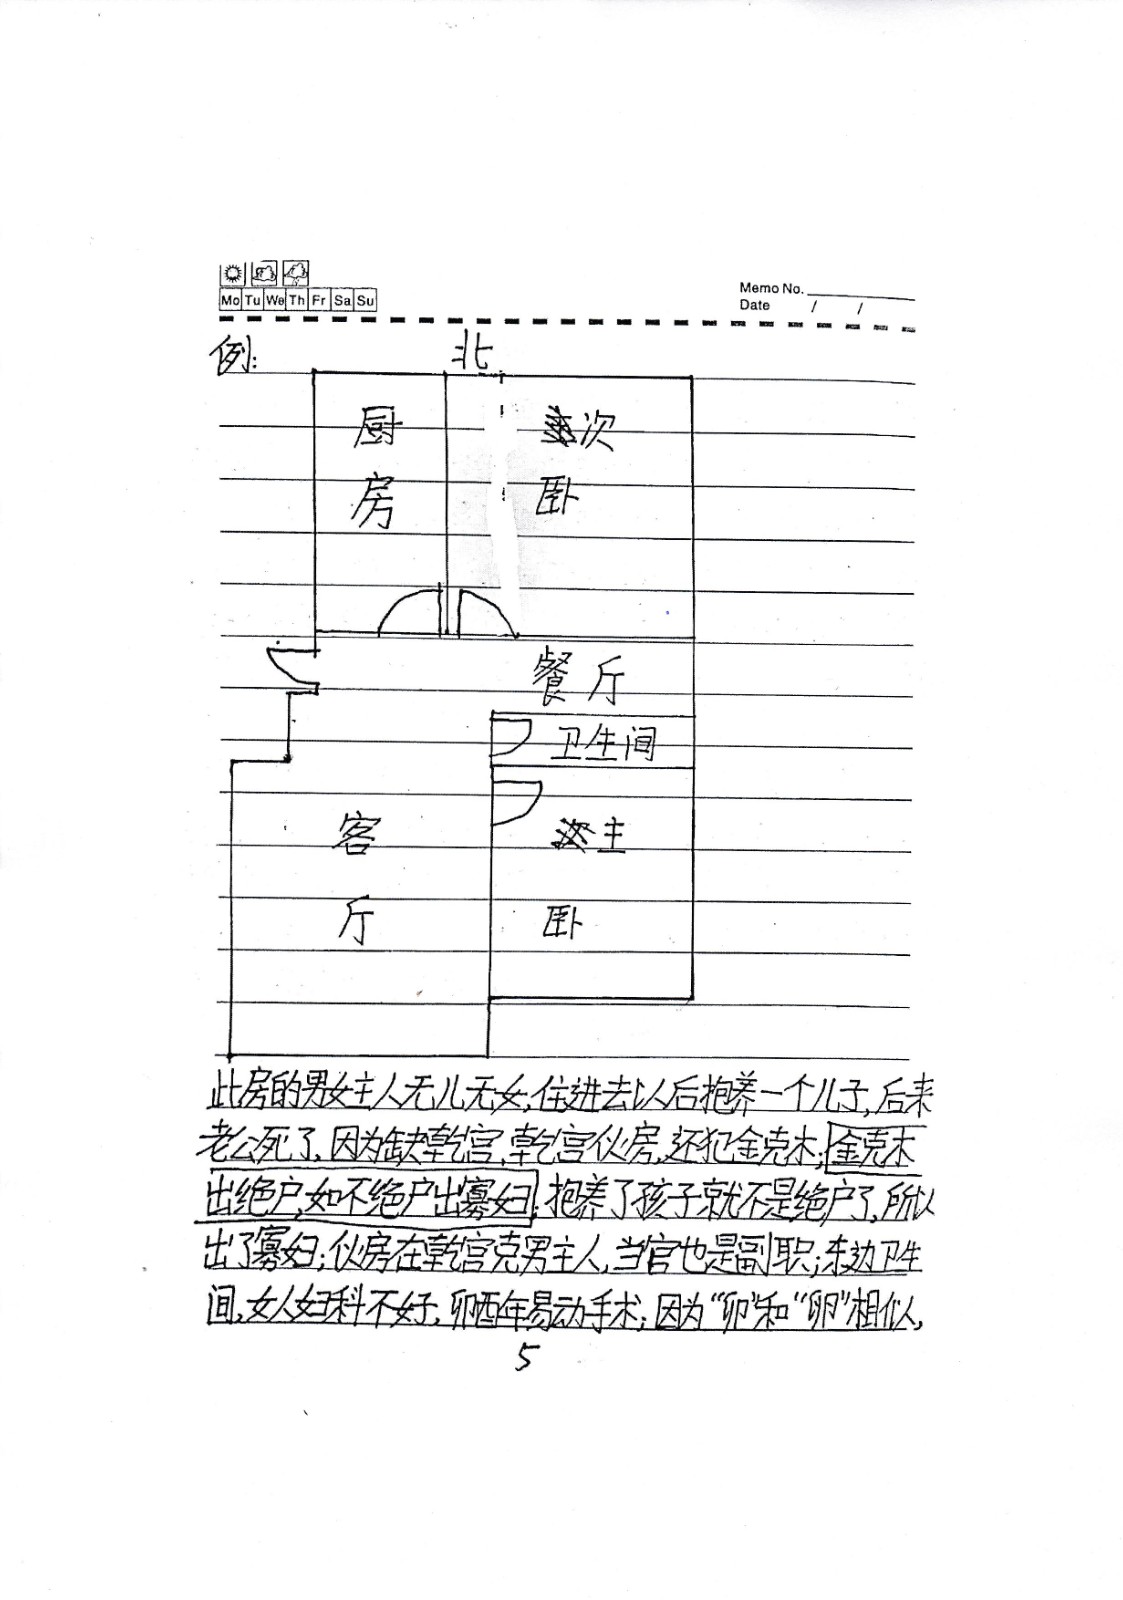 Mo Tu We Th Fr Sa Su
Memo No.
Date / /
例:
北
厨
房
次
卧
餐厅
卫生间
客
厅
主
卧
此房的男女主人无儿无女,住进去以后抱养一个儿子,后来
老公死了,因为缺乾宫,乾宫伙房,还犯金克木;金克木
出绝户,如不绝户出寡妇;抱养了孩子就不是绝户了,所以
出了寡妇;伙房在乾宫克男主人,当官也是副职;东边卫生
间,女人妇科不好,卯酉年易动手术;因为“卯”和“卵”相似,
5